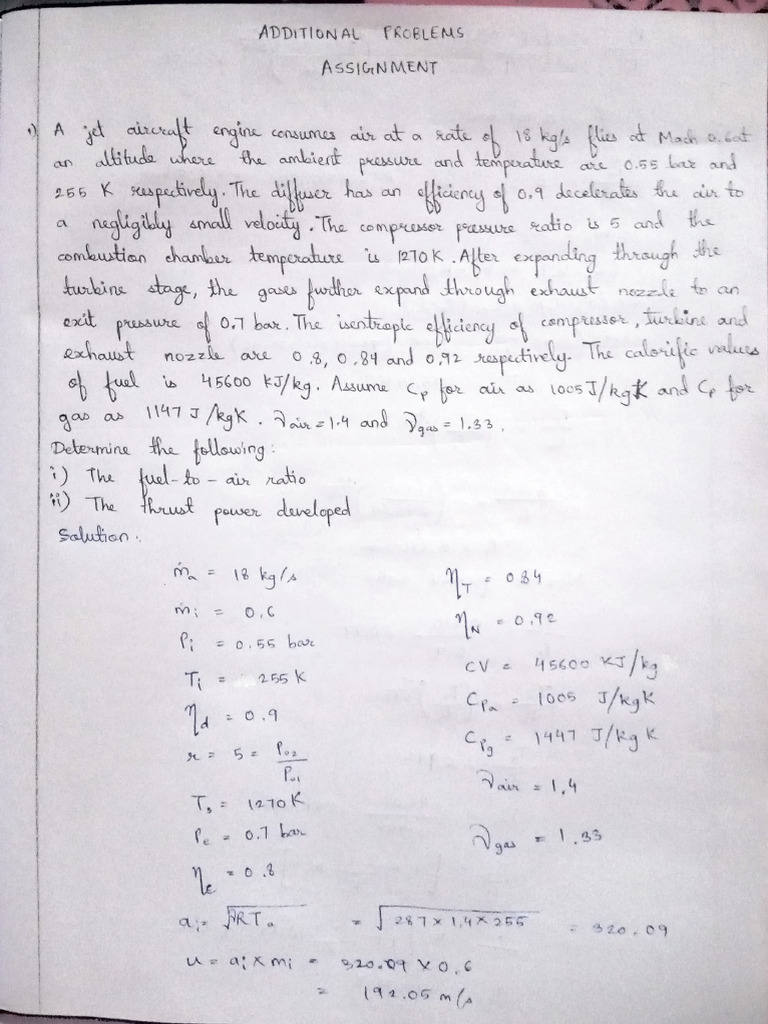 ADDITIONAL PROBLEMS
ASSIGNMENT
1) A jet aircraft engine consumes air at a rate of 18 kg/s flies at Mach 0.6 at
an altitude where the ambient pressure and temperature are 0.55 bar and
255 K respectively. The diffuser has an efficiency of 0.9 decelerates the air to
a negligibly small velocity. The compressor pressure ratio is 5 and the
combustion chamber temperature is 1270 K. After expanding through the
turbine stage, the gases further expand through exhaust nozzle to an
exit pressure of 0.7 bar. The isentropic efficiency of compressor, turbine and
exhaust nozzle are 0.8, 0.84 and 0.92 respectively. The calorific values
of fuel is 45600 KJ/kg. Assume Cp for air as 1005 J/kgK and Cp for
gas as 1147 J/kgK. γair = 1.4 and γgas = 1.33.
Determine the following:
i) The fuel-to-air ratio
ii) The thrust power developed
Solution:
ṁa = 18 kg/s ηT = 084
mi = 0.6 ηN = 0.92
Pi = 0.55 bar CV = 45600 KJ/kg
Ti = 255 K CPa = 1005 J/kgK
ηd = 0.9 CPg = 1447 J/kg K
r = 5 = P02/P01 γair = 1.4
T3 = 1270 K
Pe = 0.7 bar γgas = 1.33
ηc = 0.8
ai = √γRTa = √287 × 1.4 × 255 = 320.09
u = ai × mi = 320.09 × 0.6
= 192.05 m/s